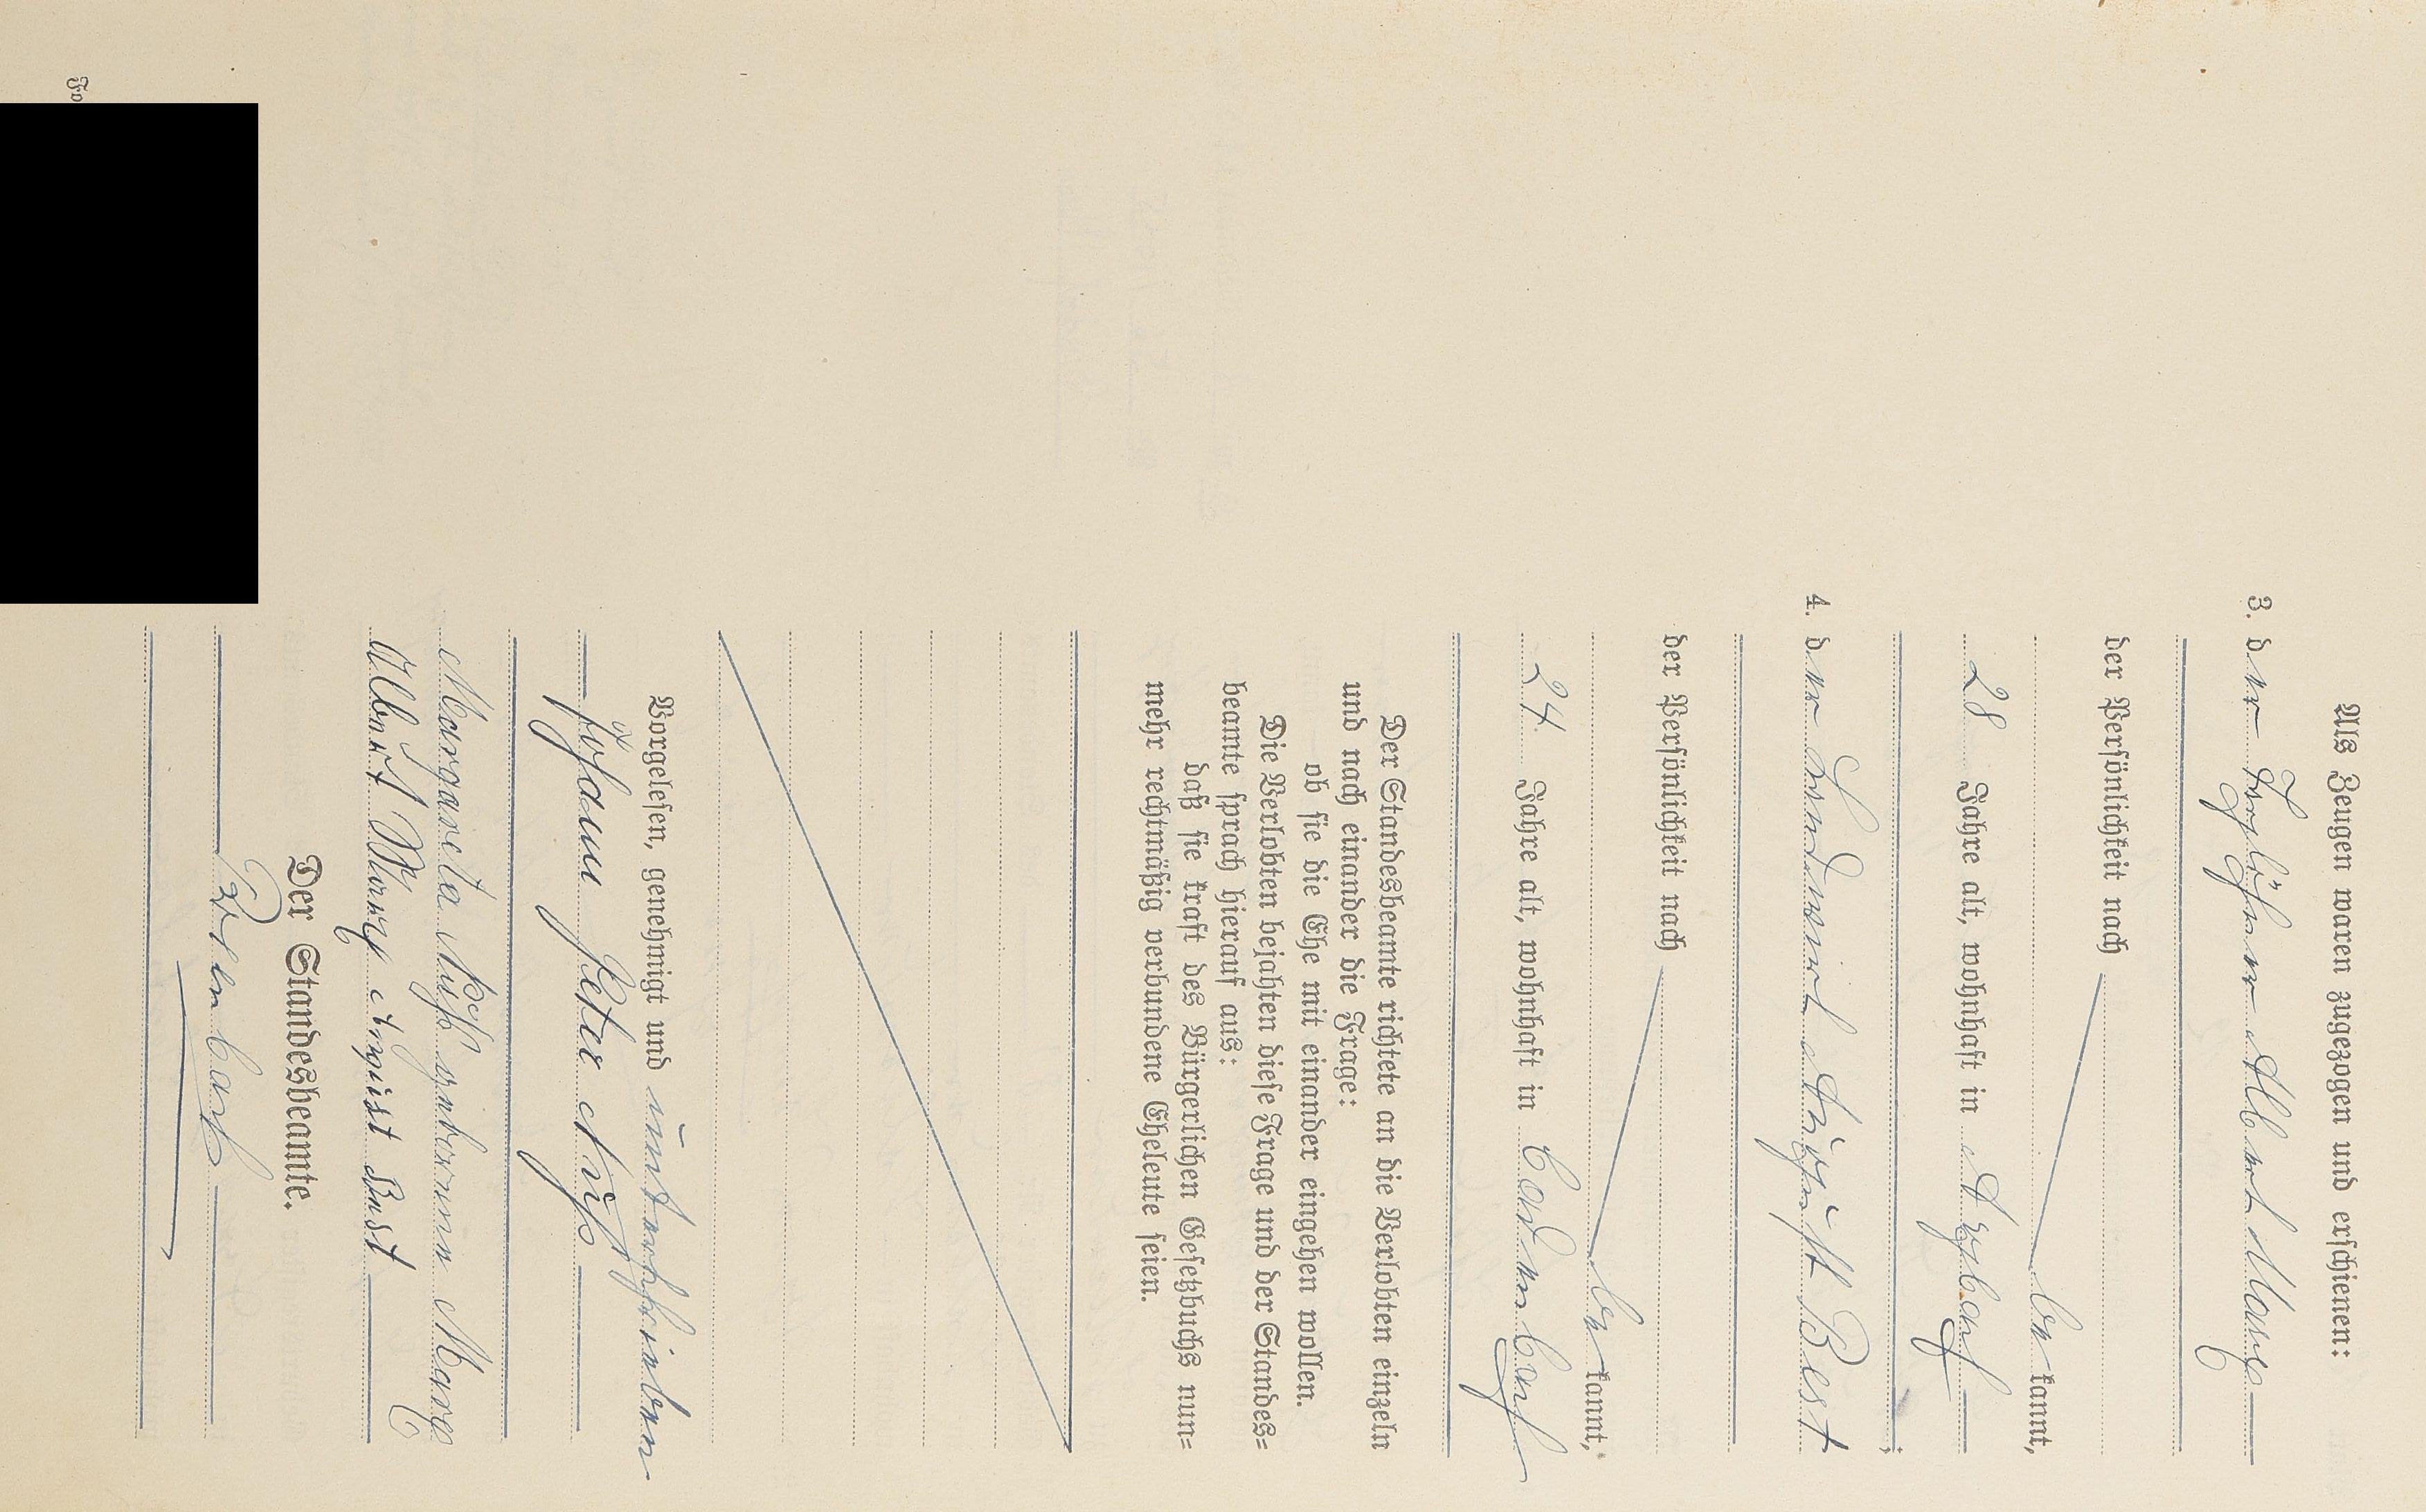 Als Zeugen waren zugezogen und erschienen:
3. der Taglöhner Albert Marx
der Persönlichkeit nach
be kannt,
28 Jahre alt, wohnhaft in Arzbach
4. der Landwirt August Best
der Persönlichkeit nach
be kannt,
24 Jahre alt, wohnhaft in Cadenbach
Der Standesbeamte richtete an die Verlobten einzeln
und nach einander die Frage:
ob sie die Ehe mit einander eingehen wollen.
Die Verlobten bejahten diese Frage und der Standes=
beamte sprach hierauf aus:
daß sie kraft des Bürgerlichen Gesetzbuchs nun=
mehr rechtmäßig verbundene Eheleute seien.
Vorgelesen, genehmigt und unterschrieben
Johann Peter
Margareta geborene Marx
Albert Marx August Best
Der Standesbeamte.
Fo